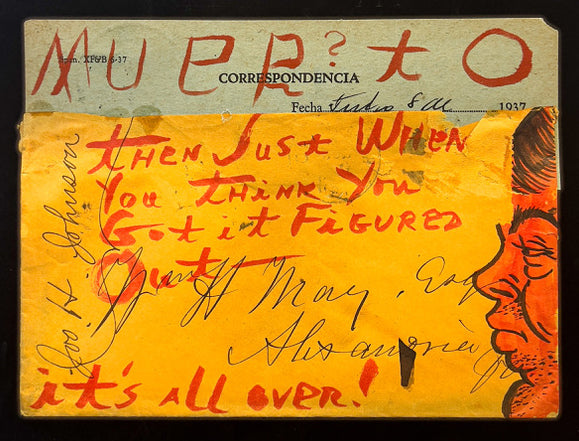 MUER?TO
CORRESPONDENCIA
Fecha 8 de 1937
tHEN JUSt WHEN
You tHINK You
Got it FIGURED
Out
Jos. H Johnson
H May, Esq
Alexandria
it's All oVER!